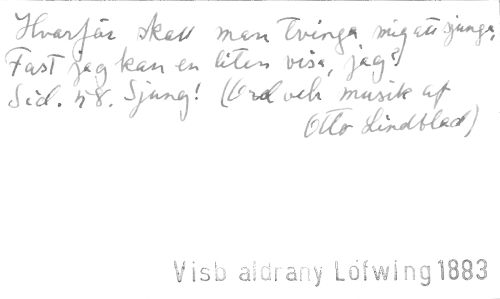 Hvarför skall man tvinga mig att sjunga,
Fast jag kan en liten visa, jag?
Sid. 58. Sjung! (Ord och musik af
Otto Lindblad)
Visb aldrany Löfwing 1883